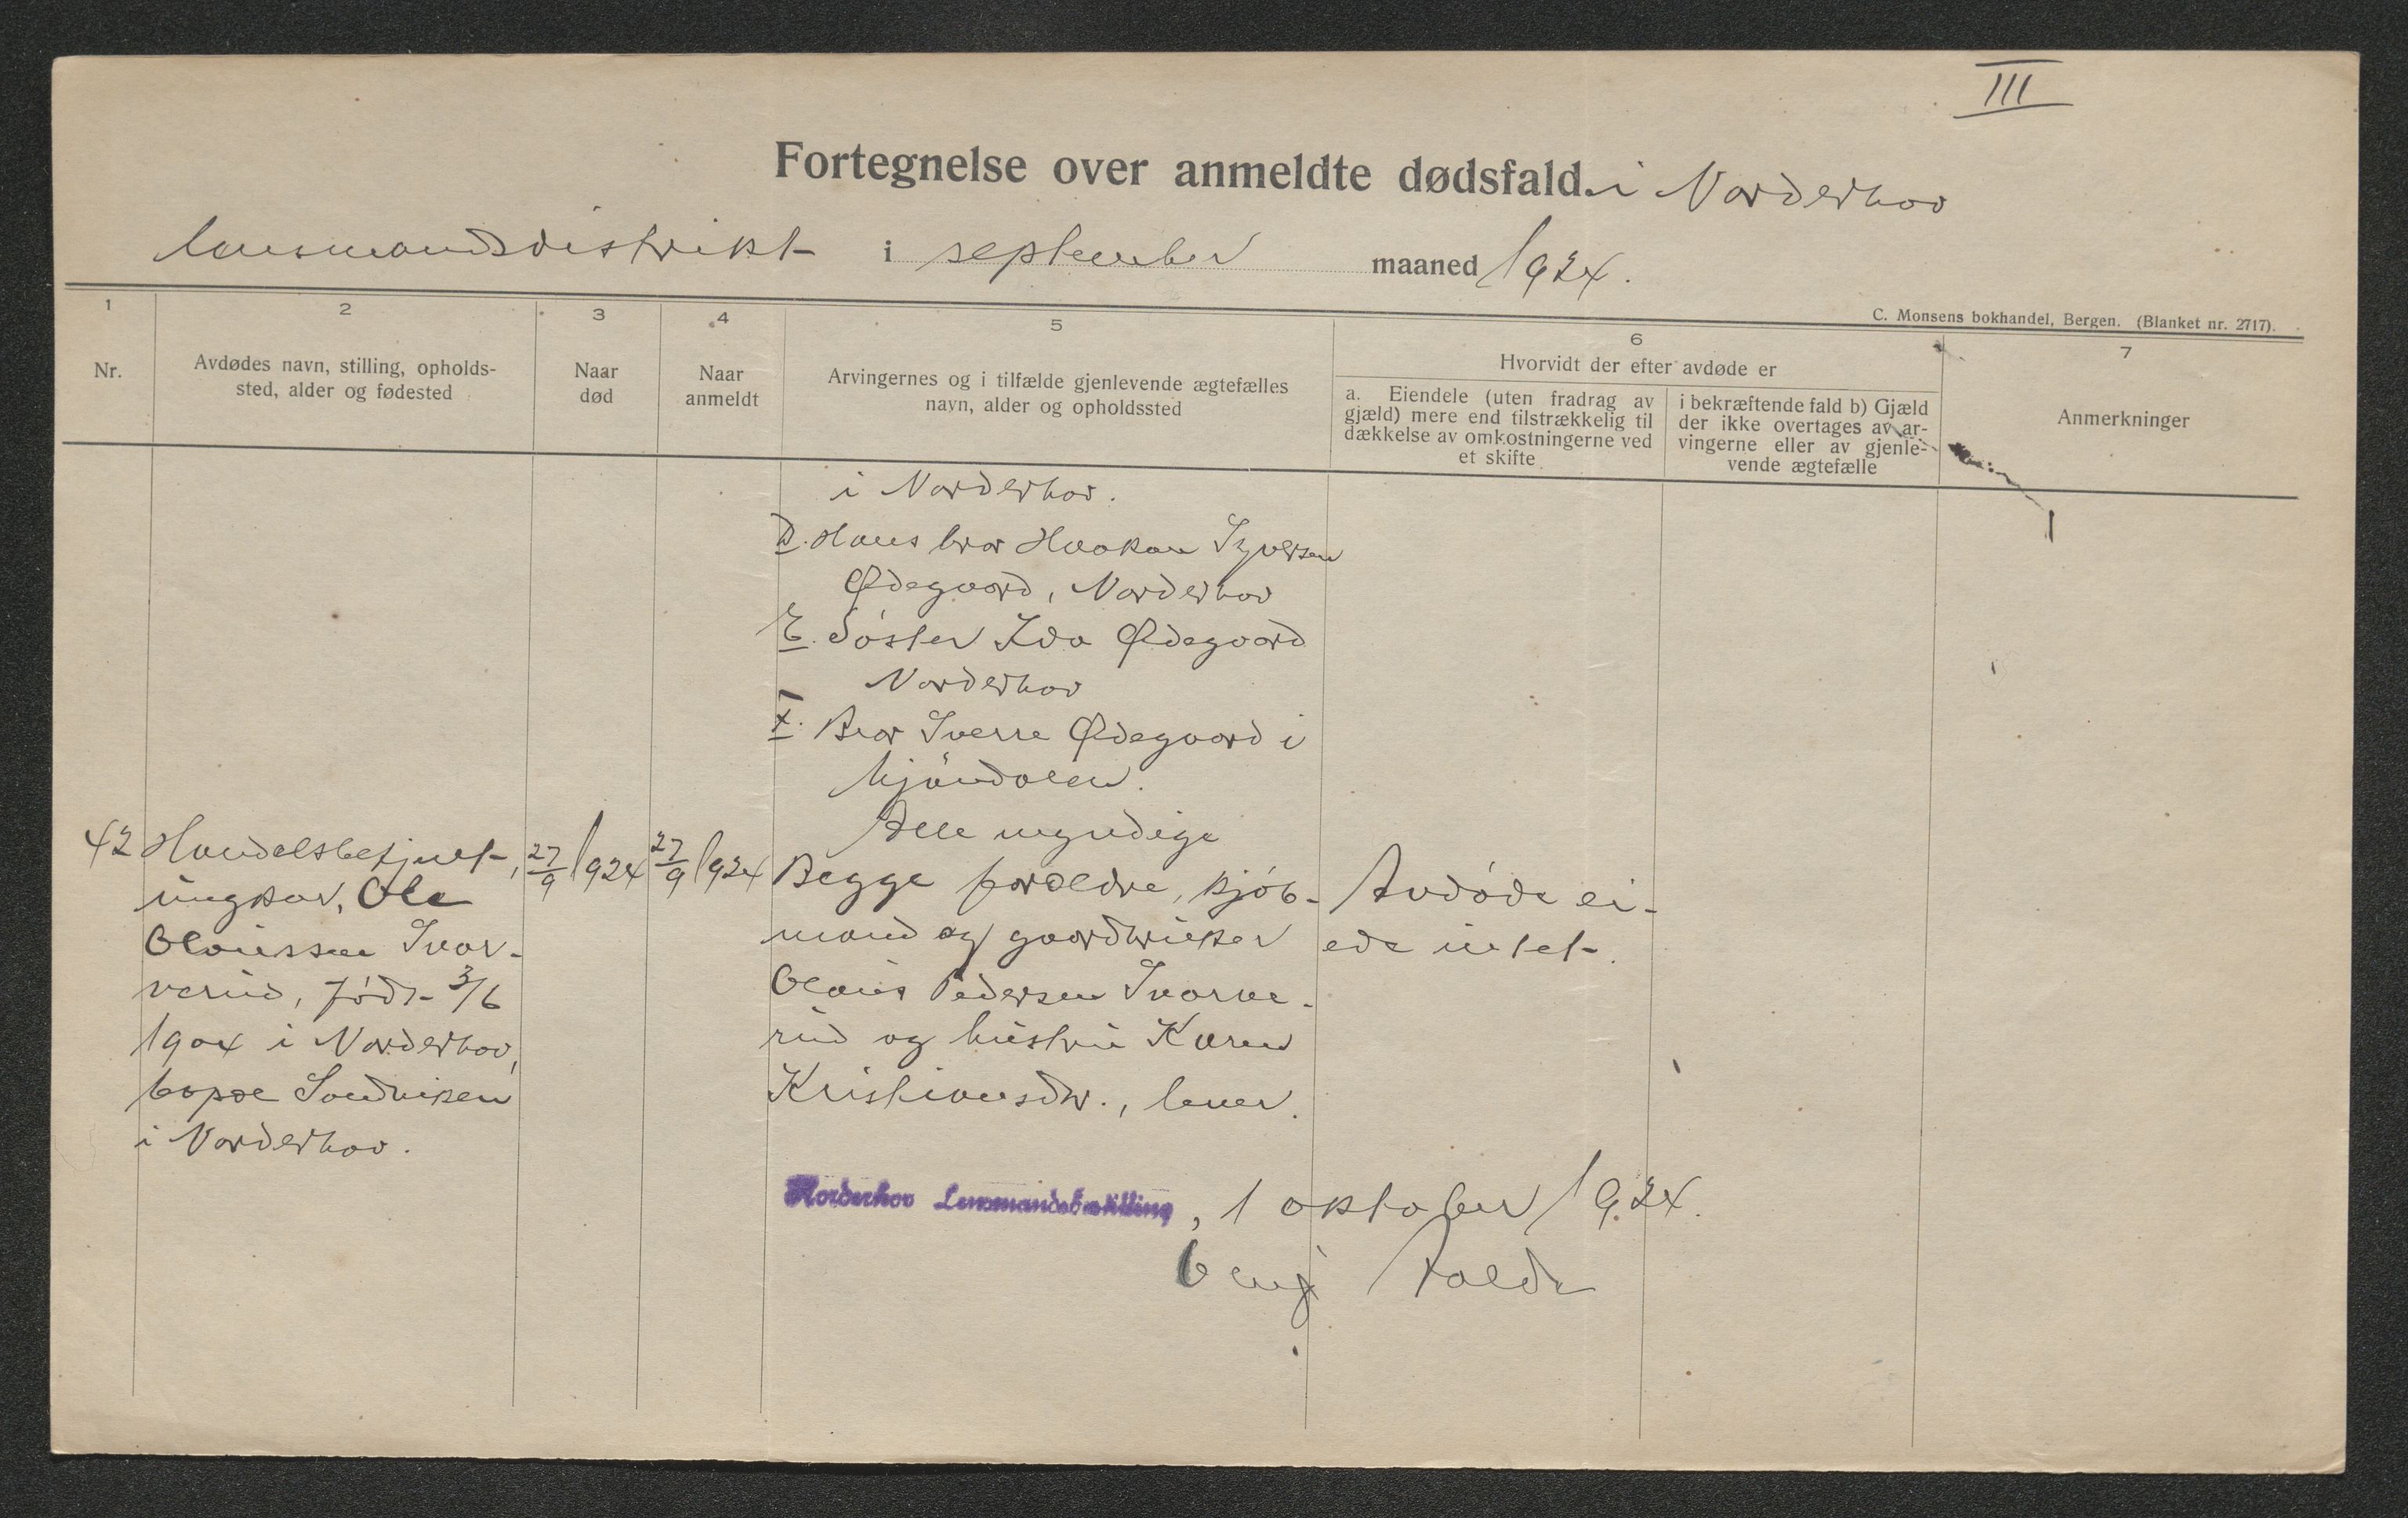 III
Fortegnelse over anmeldte dødsfald i Norderhov
lensmandsdistrikt i september maaned 1924.
C. Monsens bokhandel, Bergen. (Blanket nr. 2717).
1
2
3
4
5
6
7
Nr.
Avdødes navn, stilling, opholds-
sted, alder og fødested
Naar
død
Naar
anmeldt
Arvingernes og i tilfælde gjenlevende ægtefælles
navn, alder og opholdssted
Hvorvidt der efter avdøde er
a. Eiendele (uten fradrag av
gjæld) mere end tilstrækkelig til
dækkelse av omkostningerne ved
et skifte
i bekræftende fald b) Gjæld
der ikke overtages av ar-
vingerne eller av gjenle-
vende ægtefælle
Anmerkninger
i Norderhov.
D. Hans bror Haakon Syversen
Ødegaard, Norderhov
E. Søster Ida Ødegaard
Norderhov
F. Bror Sverre Ødegaard i
Mjøndalen.
Alle myndige
42
Handelsbetjent,
ungkar, Ole
Olaussen Svar-
verud, født 3/6
1904 i Norderhov,
bopæl Sandviken
i Norderhov.
27/9 1924
27/9 1924
Begge forældre, kjøb-
mand og gaardbruker
Olaus Pedersen Svarve-
rud og hustru Karen
Kristiansdtr., lever.
Avdøde ei-
ede intet.
Norderhov Lensmandsbestilling, 1 oktober 1924.
Benj Falde